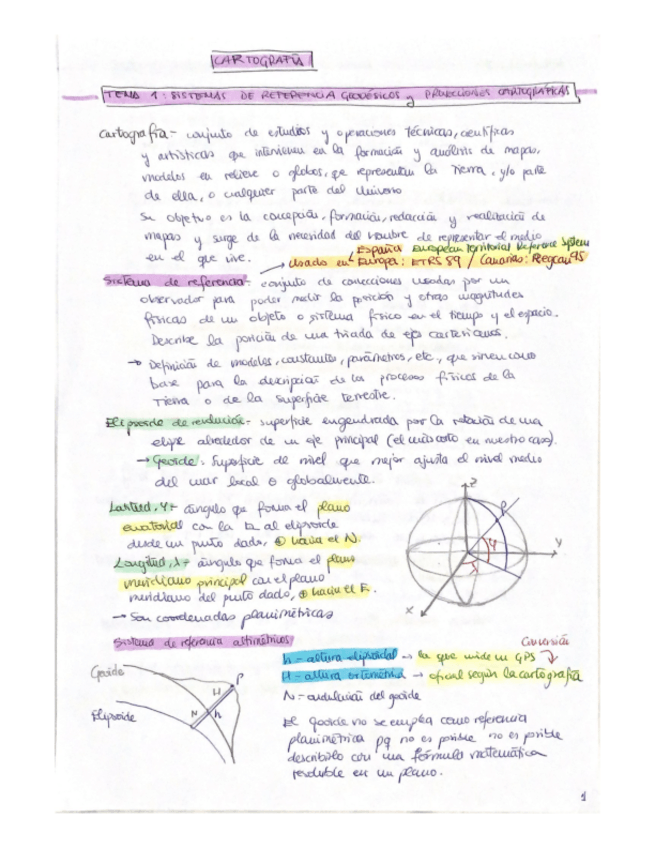 CARTOGRAFÍA
TEMA 1: SISTEMAS DE REFERENCIA GEODÉSICOS y PROYECCIONES CARTOGRÁFICAS
Cartografía - conjunto de estudios y operaciones técnicas, científicas
y artísticas que intervienen en la formación y análisis de mapas,
modelos en relieve o globos, que representan la Tierra, y/o parte
de ella, o cualquier parte del Universo
Su objetivo es la concepción, formación, redacción y realización de
mapas y surge de la necesidad del hombre de representar el medio
en el que vive.
España European Territorial Reference System
→ Usado en Europa: ETRS 89 / Canarias: Regcan 95
Sistema de referencia - conjunto de convenciones usadas por un
observador para poder medir la posición y otras magnitudes
físicas de un objeto o sistema físico en el tiempo y el espacio.
Describe la posición de una triada de ejes cartesianos.
→ Definición de modelos, constantes, parámetros, etc, que sirven como
base para la descripción de los procesos físicos de la
Tierra o de la superficie terrestre.
Elipsoide de revolución - superficie engendrada por la rotación de una
elipse alrededor de un eje principal (el más corto en nuestro caso).
→ Geoide: Superficie de nivel que mejor ajusta el nivel medio
del mar local o globalmente.
Latitud, φ - ángulo que forma el plano
ecuatorial con la al elipsoide
desde un punto dado, ⊕ hacia el N.
Longitud, λ - ángulo que forma el plano
meridiano principal con el plano
meridiano del punto dado, ⊕ hacia el E.
→ Son coordenadas planimétricas
Z
P
φ
λ
Y
X
Sistema de referencia altimétricos
Geoide
Elipsoide
P
H
N
h
Conversión
h - altura elipsoidal → la que mide un GPS
H - altura ortométrica → oficial según la cartografía
N - ondulación del geoide
El geoide no se emplea como referencia
planimétrica pq no es posible no es posible
describirlo con una fórmula matemática
resoluble en un plano.
1